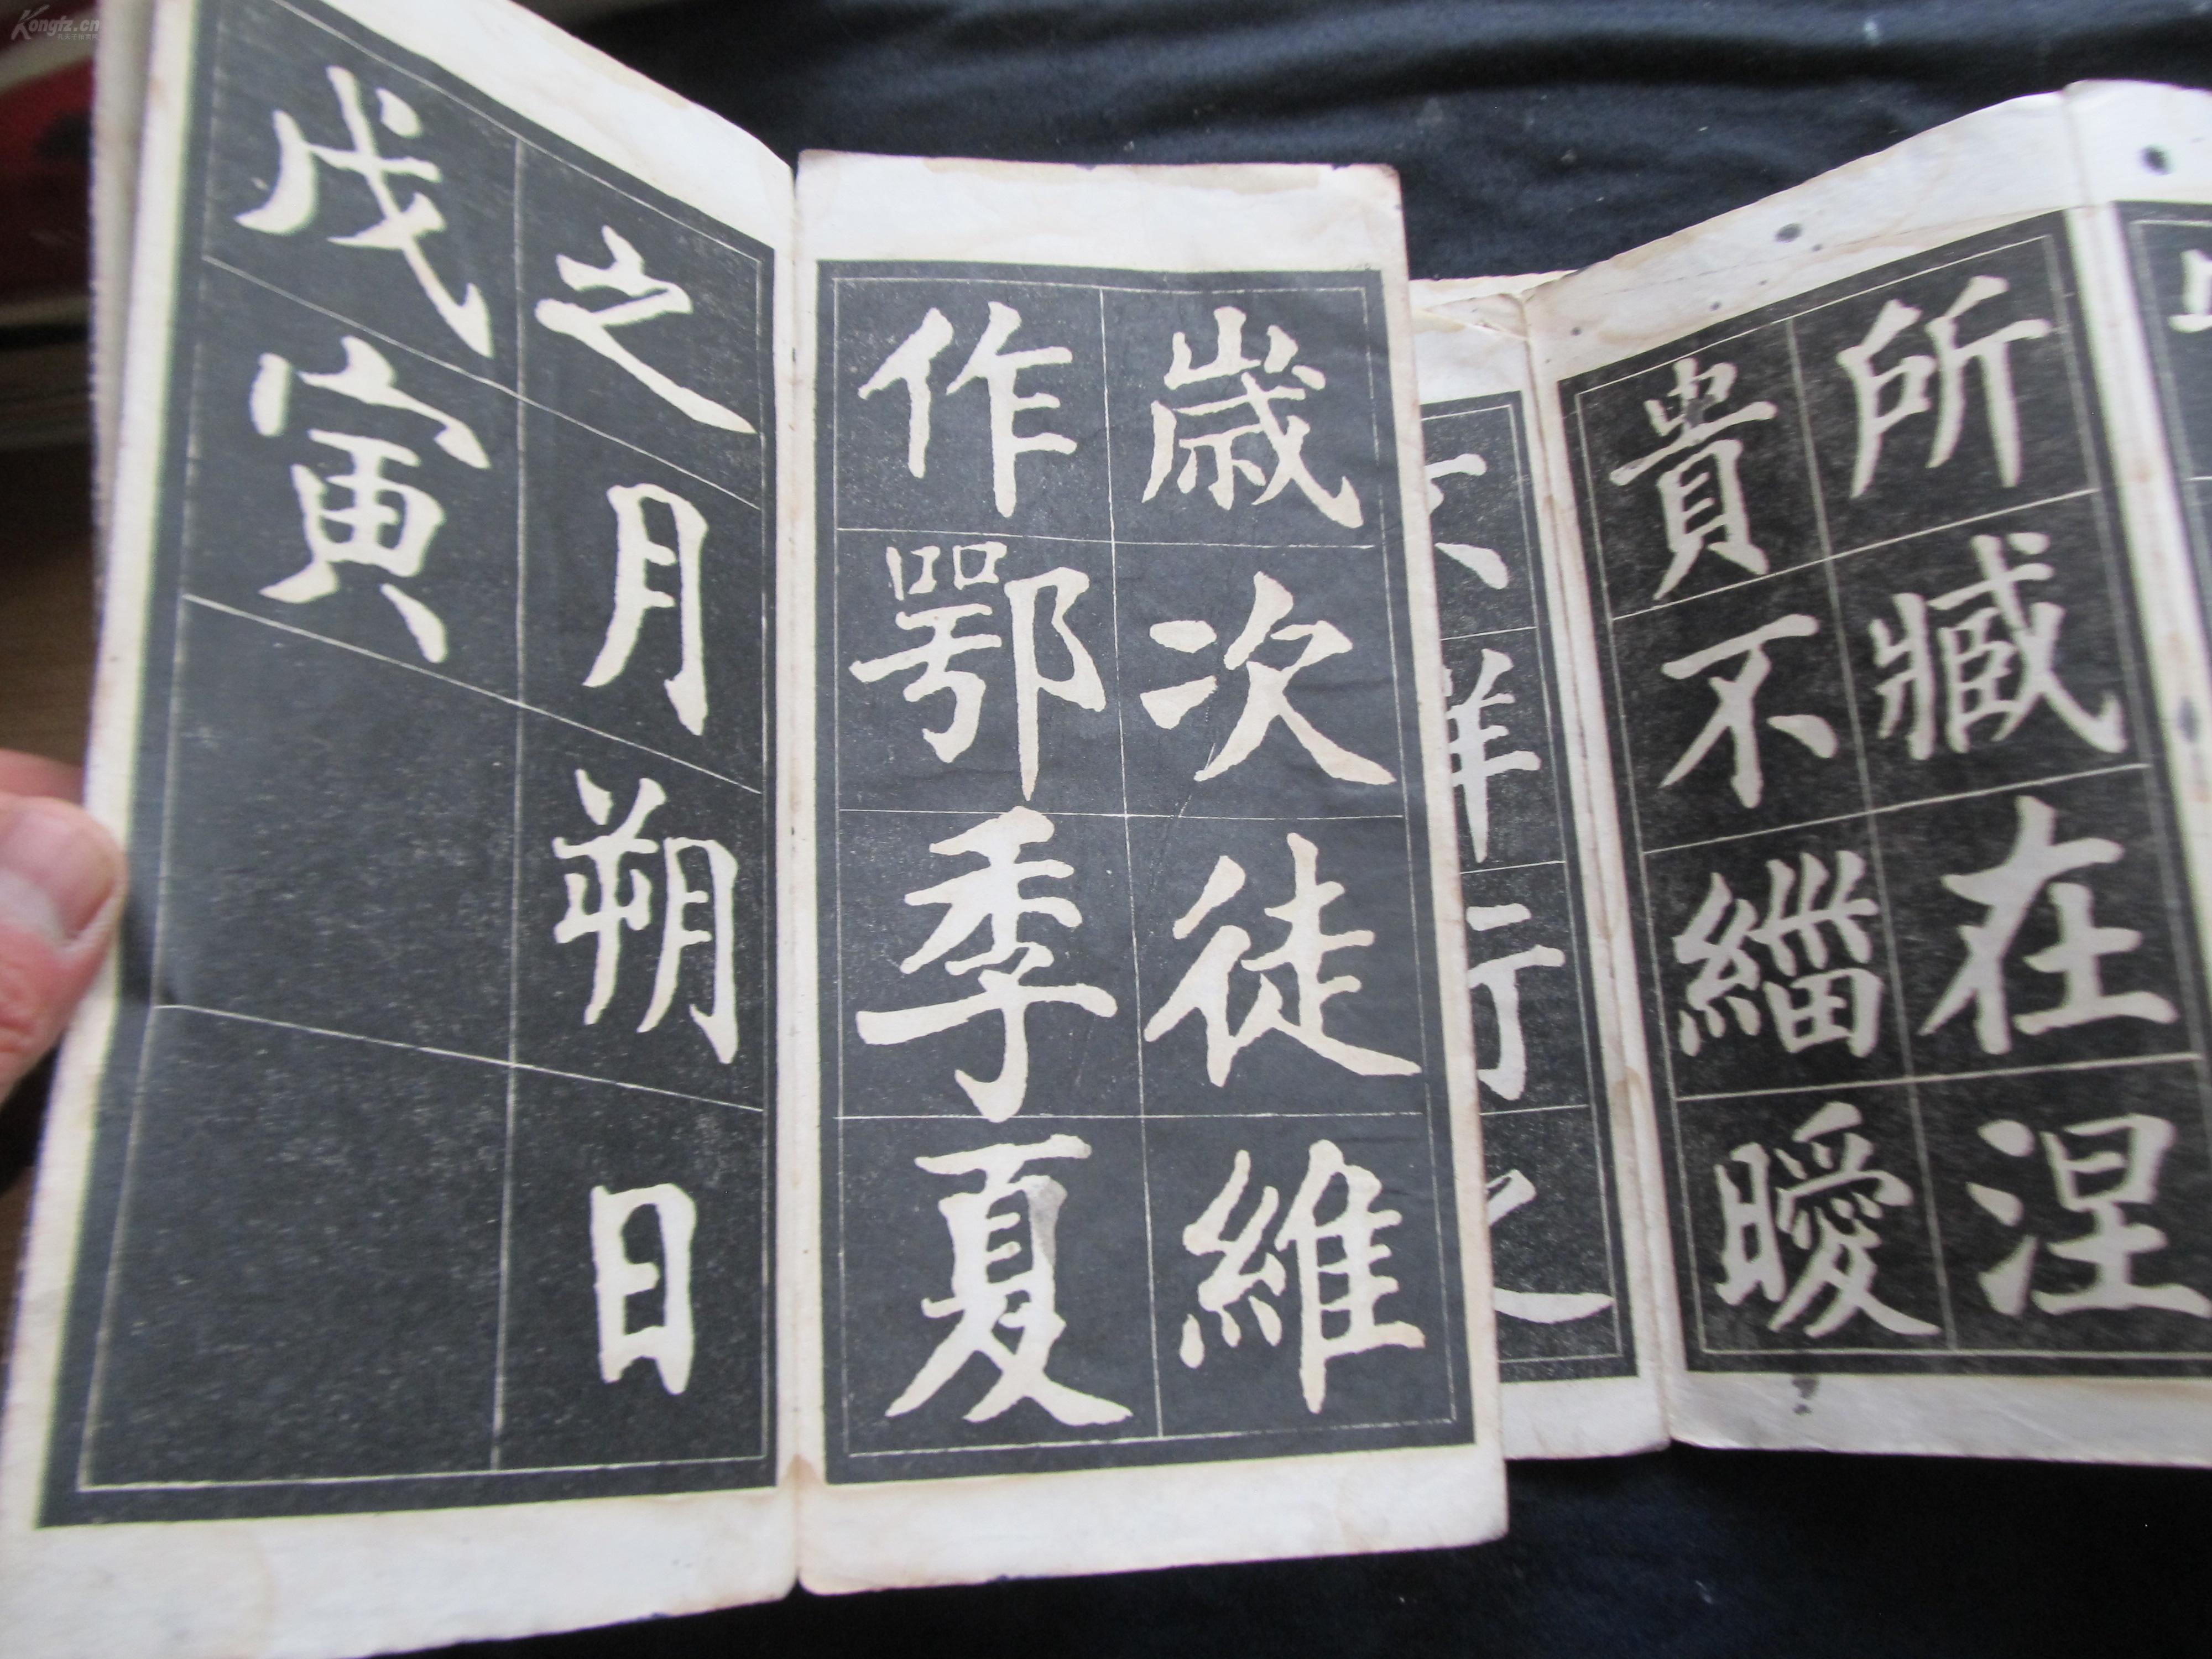 所臧在涅
貴不緇曖
行
歲次徒維
作鄂季夏
之月朔日
戊寅
Kongfz.cn